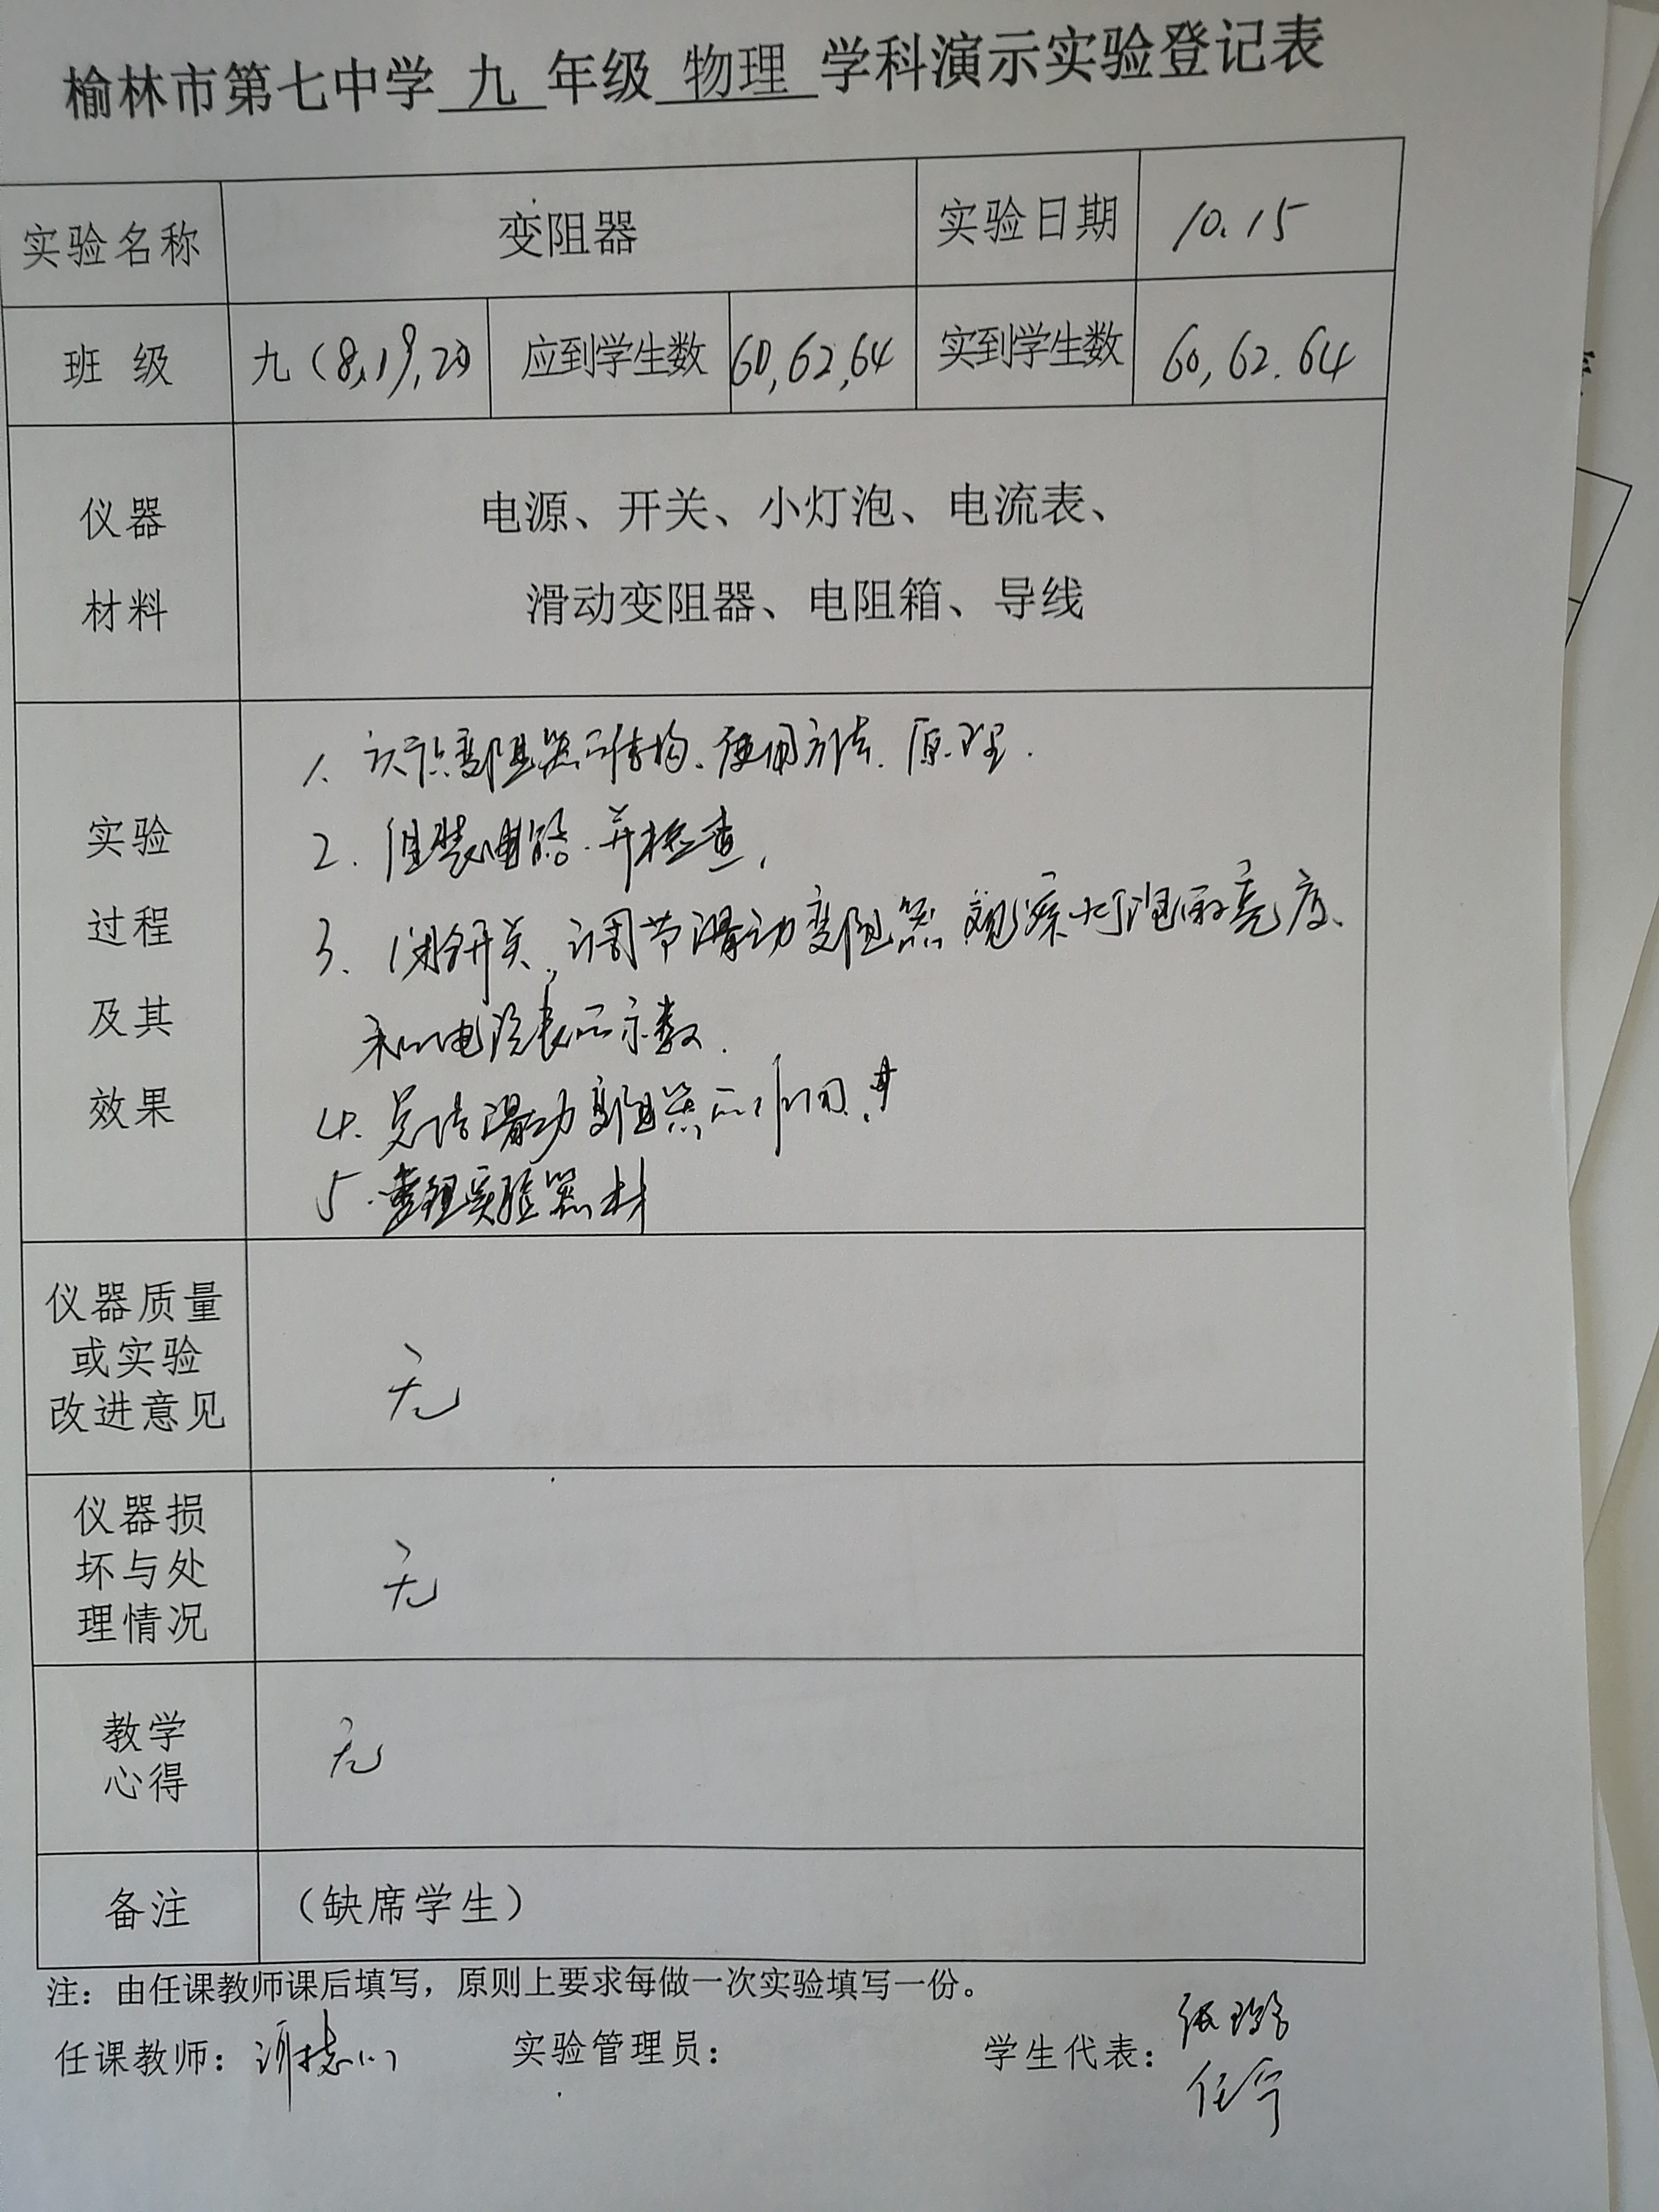 榆林市第七中学 九 年级 物理 学科演示实验登记表
实验名称 变阻器 实验日期 10.15
班 级 九(8,19,20) 应到学生数 60,62,64 实到学生数 60,62.64
仪器
材料
电源、开关、小灯泡、电流表、
滑动变阻器、电阻箱、导线
实验
过程
及其
效果
1. 认识变阻器的结构、使用方法、原理.
2. 组装电路.并检查,
3. 闭合开关,调节滑动变阻器 观察灯泡的亮度、
和电流表的示数.
4. 总结滑动变阻器的作用.
5.整理实验器材
仪器质量
或实验
改进意见
无
仪器损
坏与处
理情况
无
教学
心得
无
备注 (缺席学生)
注:由任课教师课后填写,原则上要求每做一次实验填写一份。
任课教师: 实验管理员: 学生代表:
任宁